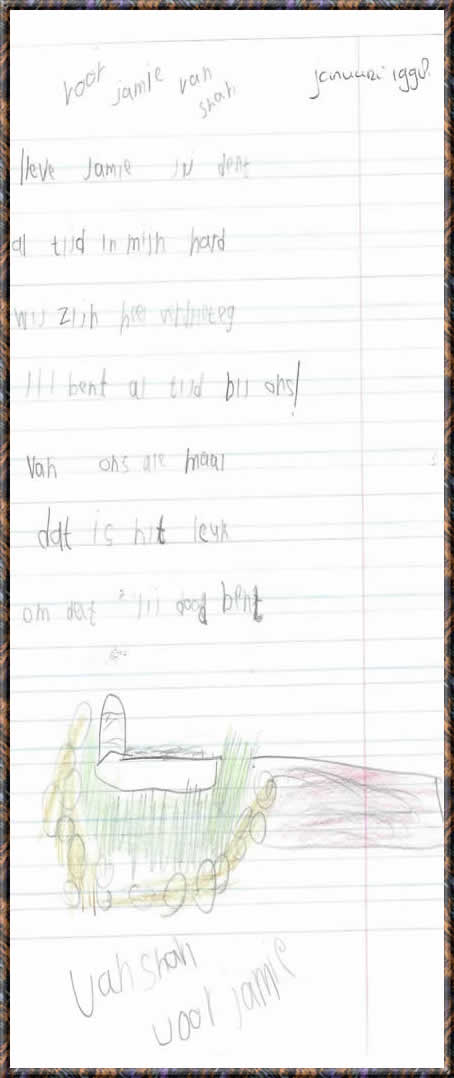 voor jamie van shan
januari 1998.
lieve Jamie jij bent
al tijd in mijn hard
wij zijn hee
jij bent al tijd bij ons!
van ons alle maal
dat is nit leuk
om dat jij dood bent
van shan
voor jamie